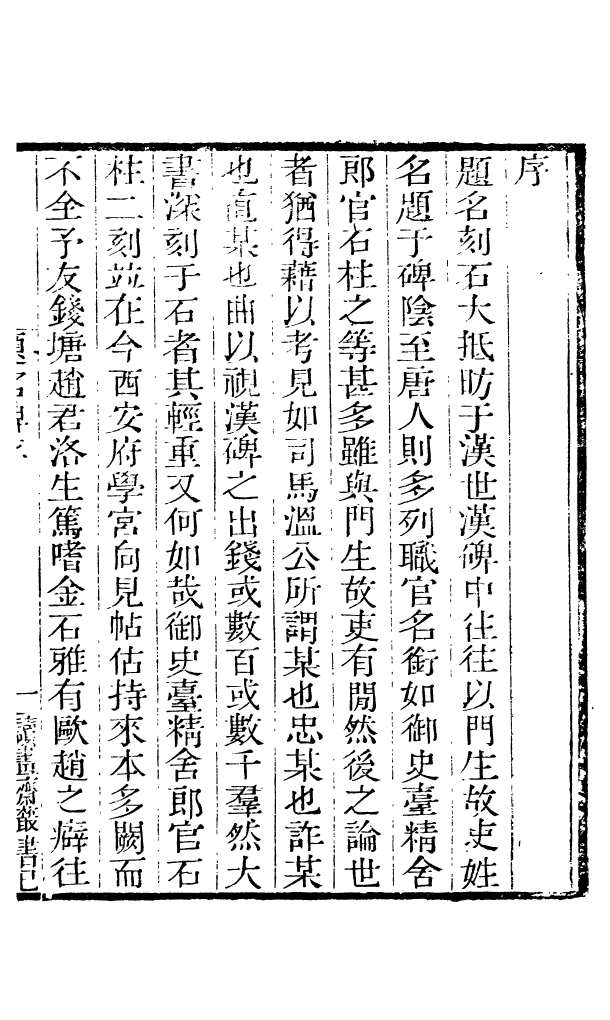 序
題名刻石大抵昉于漢世漢碑中往往以門生故吏姓
名題于碑陰至唐人則多列職官名銜如御史臺精舍
郎官石柱之等甚多雖與門生故吏有閒然後之論世
者猶得藉以考見如司馬溫公所謂某也忠某也詐某
也直某也曲以視漢碑之出錢或數百或數千羣然大
書深刻于石者其輕重又何如哉御史臺精舍郎官石
柱二刻並在今西安府學宮向見帖估持來本多闕而
不全予友錢塘趙君洛生篤嗜金石雅有歐趙之癖往
一